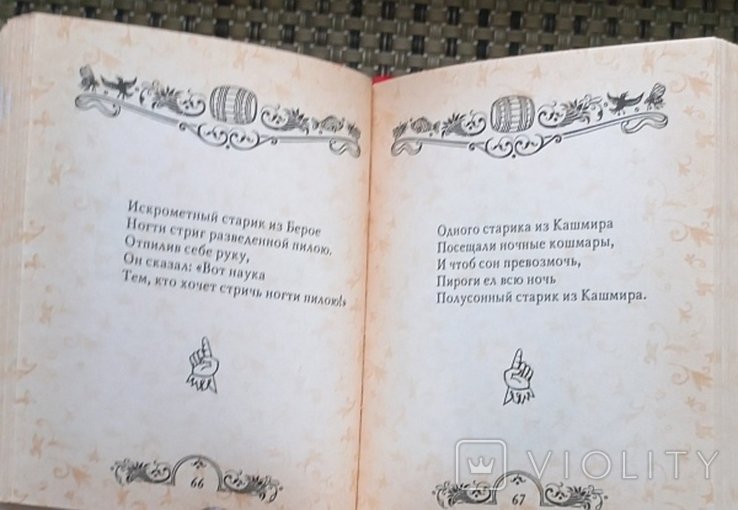 Искрометный старик из Берое
Ногти стриг разведенной пилою.
Отпилив себе руку,
Он сказал: «Вот наука
Тем, кто хочет стричь ногти пилою!»
66
Одного старика из Кашмира
Посещали ночные кошмары,
И чтоб сон превозмочь,
Пироги ел всю ночь
Полусонный старик из Кашмира.
67
VIOLITY